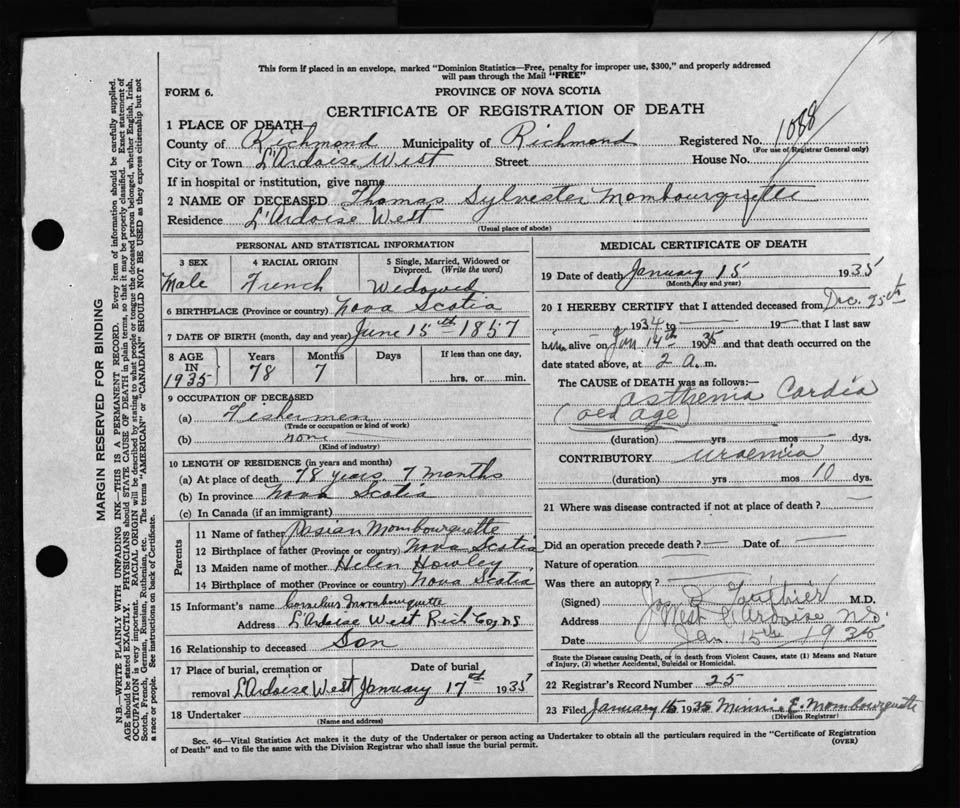 This form if placed in an envelope, marked "Dominion Statistics—Free, penalty for improper use, $300," and properly addressed
will pass through the Mail "FREE"
FORM 6.
PROVINCE OF NOVA SCOTIA
CERTIFICATE OF REGISTRATION OF DEATH
1 PLACE OF DEATH—
County of Richmond Municipality of Richmond Registered No. 1088
(For use of Registrar General only)
City or Town L'Ardoise West Street House No.
If in hospital or institution, give name
2 NAME OF DECEASED Thomas Sylvester Mombourquette
Residence L'Ardoise West
(Usual place of abode)
PERSONAL AND STATISTICAL INFORMATION
3 SEX 4 RACIAL ORIGIN 5 Single, Married, Widowed or
Divorced. (Write the word)
Male French Widowed
6 BIRTHPLACE (Province or country) Nova Scotia
7 DATE OF BIRTH (month, day and year) June 15th 1857
8 AGE IN 1935 Years Months Days If less than one day,
78 7 hrs. or min.
9 OCCUPATION OF DECEASED
(a) Fishermen
(Trade or occupation or kind of work)
(b) none
(Kind of industry)
10 LENGTH OF RESIDENCE (in years and months)
(a) At place of death 78 years 7 months
(b) In province Nova Scotia
(c) In Canada (if an immigrant)
Parents
11 Name of father Mombourquette
12 Birthplace of father (Province or country) Nova Scotia
13 Maiden name of mother Helen Howley
14 Birthplace of mother (Province or country) Nova Scotia
15 Informant's name Cornelius Mombourquette
Address L'Ardoise West Rich Co, N.S
16 Relationship to deceased Son
17 Place of burial, cremation or Date of burial
removal L'Ardoise West January 17th 1935
18 Undertaker
(Name and address)
MEDICAL CERTIFICATE OF DEATH
19 Date of death January 15 1935
(Month, day and year)
20 I HEREBY CERTIFY that I attended deceased from Dec. 25th
1934 to 19— that I last saw
him alive on Jan 14th 1935 and that death occurred on the
date stated above, at 2 a.m.
The CAUSE OF DEATH was as follows:—
asthenia Cordia
(old age)
(duration) yrs mos dys.
CONTRIBUTORY uraemia
(duration) yrs mos 10 dys.
21 Where was disease contracted if not at place of death?
Did an operation precede death? Date of
Nature of operation
Was there an autopsy?
(Signed) Gauthier M.D.
Address West L'Ardoise N.S.
Date Jan 15th 1935
State the Disease causing Death, or in death from Violent Causes, state (1) Means and Nature
of Injury, (2) whether Accidental, Suicidal or Homicidal.
22 Registrar's Record Number 25
23 Filed January 15 1935 Minnie E. Mombourquette
(Division Registrar)
Sec. 46—Vital Statistics Act makes it the duty of the Undertaker or person acting as Undertaker to obtain all the particulars required in the "Certificate of Registration
of Death" and to file the same with the Division Registrar who shall issue the burial permit.
(OVER)
MARGIN RESERVED FOR BINDING
N.B.—WRITE PLAINLY WITH UNFADING INK—THIS IS A PERMANENT RECORD. Every item of information should be carefully supplied.
AGE should be stated EXACTLY. PHYSICIANS should STATE CAUSE OF DEATH in plain terms, so that it may be properly classified. Exact statement of
OCCUPATION is very important. RACIAL ORIGIN will be described by stating to what people or tongue the deceased person belonged, whether English, Irish,
Scotch, French, German, Russian, Ruthenian, etc. The terms "AMERICAN" or "CANADIAN" SHOULD NOT BE USED as they express citizenship but not
a race or people. See instructions on back of Certificate.